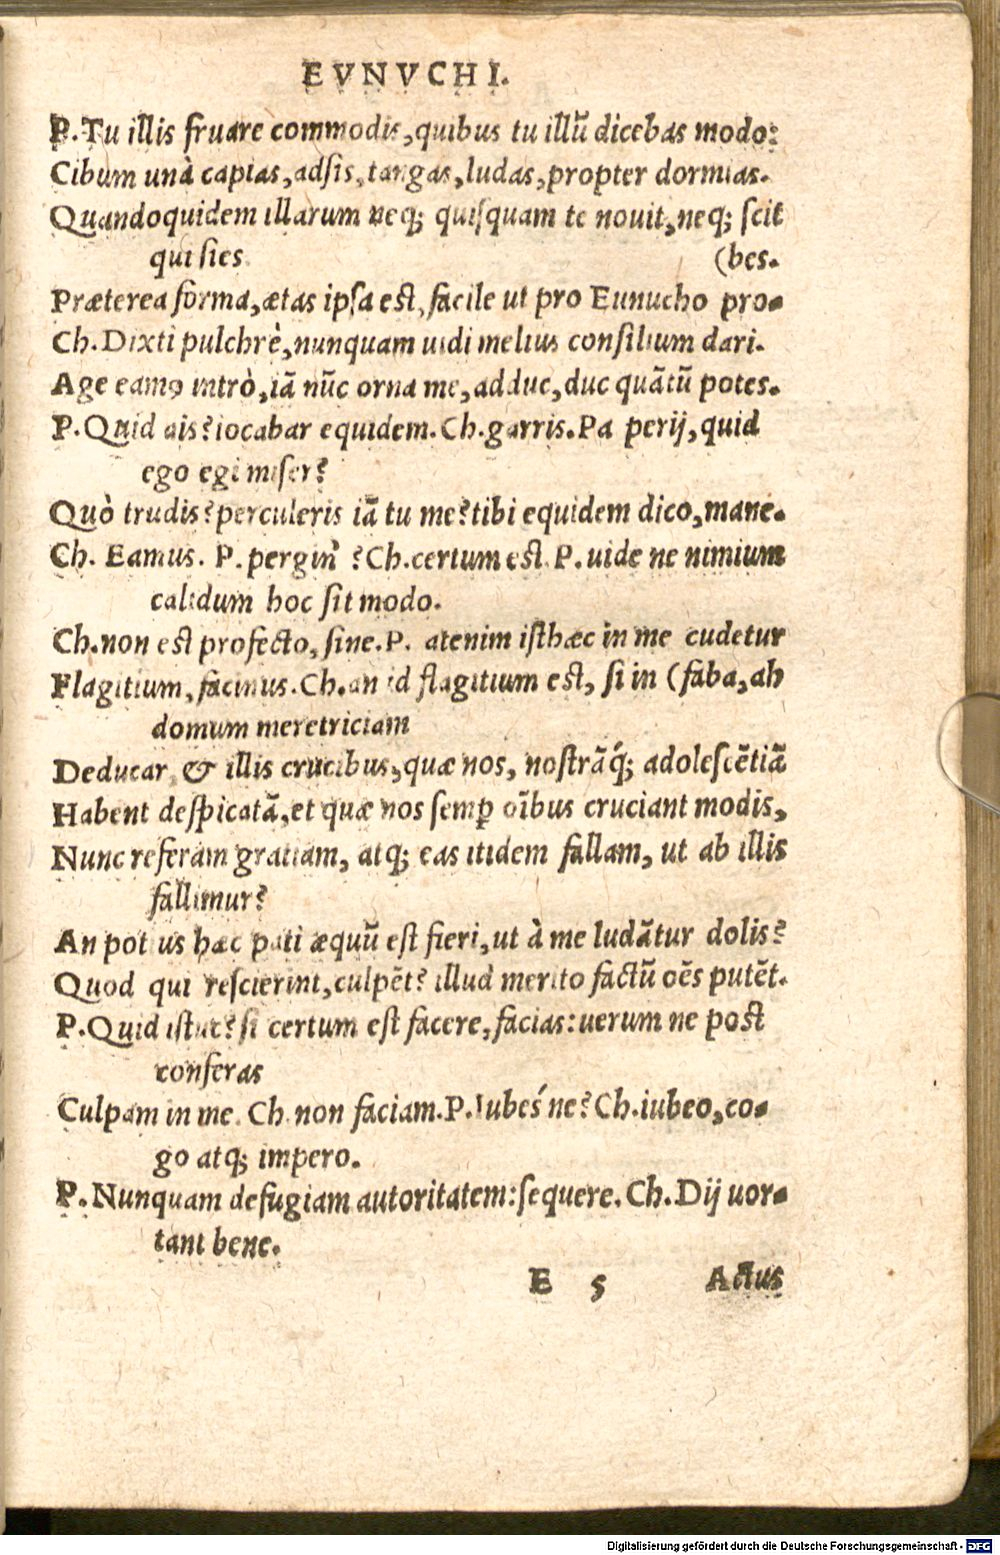 EVNVCHI.
P.Tu illis fruare commodis,quibus tu illũ dicebas modo:
Cibum unà capias,adsis,tangas,ludas,propter dormias.
Quandoquidem illarum neq; quisquam te nouit,neq; scit
qui sies (bes.
Præterea forma,ætas ipsa est,facile ut pro Eunucho pro-
Ch.Dixti pulchrè,nunquam uidi melius consilium dari.
Age eamꝰ intrò,iã nũc orna me,adduc,duc quãtũ potes.
P.Quid ais?iocabar equidem.Ch.garris.Pa perij,quid
ego egi miser?
Quò trudis?perculeris iã tu me?tibi equidem dico,mane.
Ch. Eamus. P.pergin' ?Ch.certum est.P.uide ne nimium
calidum hoc sit modo.
Ch.non est profecto,sine.P. atenim isthæc in me cudetur
Flagitium,facinus.Ch.an id flagitium est, si in (faba,ah
domum meretriciam
Deducar, & illis crucibus,quæ nos, nostrãq́; adolescẽtiã
Habent despicatã,et quæ nos semꝑ oĩbus cruciant modis,
Nunc referam gratiam, atq; eas itidem fallam, ut ab illis
fallimur?
An potius hæc pati æquũ est fieri,ut à me ludãtur dolis?
Quod qui rescierint,culpẽt? illud merito factũ oẽs putẽt.
P.Quid istuc?si certum est facere,facias:uerum ne post
conferas
Culpam in me. Ch.non faciam.P.Iubes'ne?Ch.iubeo,co-
go atq; impero.
P.Nunquam defugiam autoritatem:sequere.Ch.Dij uor-
tant bene.
E 5 Actus
Digitalisierung gefördert durch die Deutsche Forschungsgemeinschaft - DFG